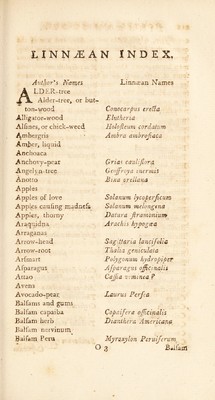 LINNÆAN INDEX.
Author's Names Linnæan Names
ALDER-tree
Alder-tree, or but-
ton-wood Conocarpus erecta
Alligator-wood Elutheria
Alsines, or chick-weed Holosteum cordatum
Ambergris Ambra ambrosiaca
Amber, liquid
Anchoaca
Anchovy-pear Grias cauliflora
Angelyn-tree Geoffroya inermis
Anotto Bixa orellana
Apples
Apples of love Solanum lycopersicum
Apples causing madness Solanum melongena
Apples, thorny Datura stramonium
Araquidna Arachis hypogæa
Arraganas
Arrow-head Sagittaria lancifolia
Arrow-root Thalia geniculata
Arsmart Polygonum hydropiper
Asparagus Asparagus officinalis
Attao Cassia viminea P
Avens
Avocado-pear Laurus Persea
Balsams and gums
Balsam capaiba Copaifera officinalis
Balsam herb Dianthera Americana
Balsam nervinum
Balsam Peru Myroxylon Peruiferum
O 3 Balsam